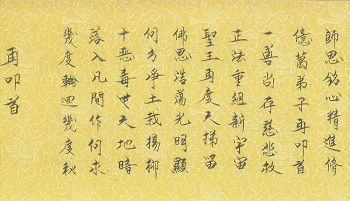 師恩銘心精進修
億萬弟子再叩首
一善尚存慈悲救
正法重組新宇宙
聖王再度天梯留
佛恩浩蕩光明顯
何方淨土栽楊柳
十惡毒世天地暗
落入凡間作何求
幾度輪迴幾度秋
再叩首